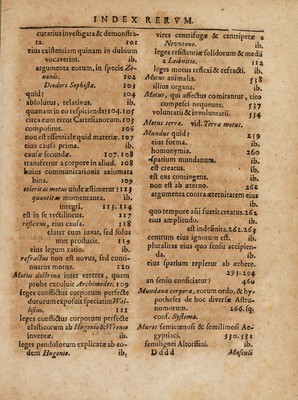 INDEX RERVM.
curatius investigata & demonstra-
ta. 101
eius existentiam quinam in dubium
vocaverint. ib.
argumenta eorum, in specie Ze-
nonis. 102
Diodori Sophistæ. 103
quid? 104
absolutus, relativus. ib.
quænam in eo respiciendæ? 104. 105
circa eum error Cartesianorum. ib.
compositus. 106
non est essentiale quid materiæ. 107
eius causa prima. ib.
causæ secundæ. 107. 108
transfertur à corpore in aliud. ib.
huius communicationis axiomata
bina. 109
celeritas motus unde æstimetur? 113
quantitas momentanea. ib.
integra. 113. 114
est in se rectilineus. 117
reflexus, eius causa. 118
elater eum iuvat, sed solus
non producit. 119
eius legum ratio. ib.
refractus non est novus, sed conti-
nuatus motus. 120
Motus doctrina inter veteres, quam
probe excoluit Archimedes. 109
leges conflictus corporum perfecte
durorum exposuit speciatim Wal-
lisius. 111
leges conflictus corporum perfecte
elasticorum ab Hugenio & Wrenno
inventæ. ib.
leges pendulorum explicatæ ab eo-
dem Hugenio. ib.
vires centrifugæ & centripetæ a
Newtono. ib.
leges resistentiæ solidorum & medii
a Leibnitio. 112
leges motus reflexi & refracti. ib.
Motus animalis. 538
illius organa. ib.
Motus, qui affectus comitantur, ciro
competsci nequeunt. 537
voluntarii & involuntarii. 554
Motus terræ. vid. Terræ motus.
Mundus quid? 259
eius forma. ib.
homonymia. 260
spatium mundanum. ib.
est creatus. ib.
est ens contingens. ib.
non est ab æterno. 262
argumenta contra æternitatem eius
ib.
quo tempore anni fuerit creatus. ib.
eius amplitudo. ib.
est indefinita. 262. 263
centrum eius ignotum est. ib.
pluralitas eius quo sensu accipien-
da. ib.
eius spatium repletur ab æthere.
293. 294
an senio consociatur? 460
Mundana corpora, eorum ordo, & hy-
potheses de hoc diversæ Astro-
nomorum. 266. sq.
conf. Systema.
Mures semicœnosi & semilimosi Æe-
gyptiaci. 530. 531
semiligni Altorfini. ib.
D d d d Musculi